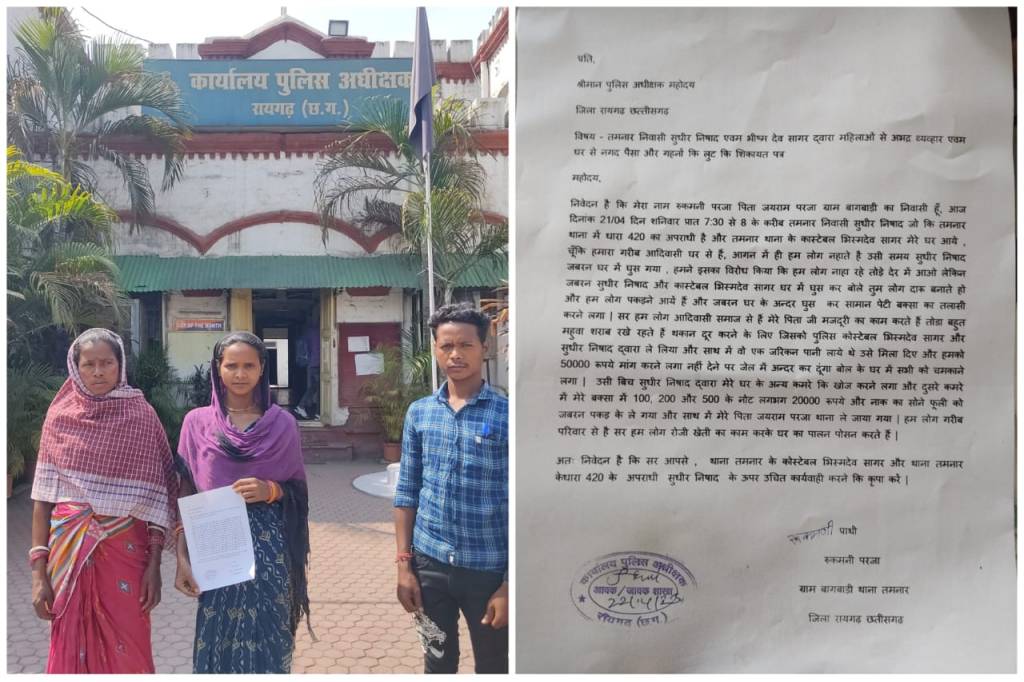 कार्यालय पुलिस अधीक्षक
रायगढ़ (छ.ग.)
प्रति,
श्रीमान पुलिस अधीक्षक महोदय
जिला रायगढ छत्तीसगढ
विषय - तमनार निवासी सुधीर निषाद एवम भीष्म देव सागर द्वारा महिलाओ से अभद्र व्यव्हार एवम
घर से नगद पैसा और गहनों कि लुट कि शिकायत पत्र
महोदय,
निवेदन है कि मेरा नाम रुकमनी परजा पिता जयराम परजा ग्राम बागबाड़ी का निवासी हूँ, आज
दिनांक 21/04 दिन शनिवार प्रात 7:30 से 8 के करीब तमनार निवासी सुधीर निषाद जो कि तमनार
थाना में धारा 420 का अपराधी है और तमनार थाना के कास्टेबल भिस्मदेव सागर मेरे घर आये ,
चूँकि हमारा गरीब आदिवासी घर से हैं, आगन में ही हम लोग नहाते है उसी समय सुधीर निषाद
जबरन घर में घुस गया , हमने इसका विरोध किया कि हम लोग नाहा रहे तोड़े देर में आओ लेकिन
जबरन सुधीर निषाद और कास्टेबल भिस्मदेव सागर घर में घुस कर बोले तुम लोग दारू बनाते हो
और हम लोग पकड़ने आये हैं और जबरन घर के अन्दर घुस कर सामान पेटी बक्सा का तलासी
करने लगा | सर हम लोग आदिवासी समाज से हैं मेरे पिता जी मजदूरी का काम करते हैं तोडा बहुत
महुवा शराब रखे रहते हैं थकान दूर करने के लिए जिसको पुलिस कोस्टेबल भिस्मदेव सागर और
सुधीर निषाद द्वारा ले लिया और साथ में वो एक जरिकन पानी लाये थे उसे मिला दिए और हमको
50000 रूपये मांग करने लगा नहीं देने पर जेल में अन्दर कर दूंगा बोल के घर में सभी को चमकाने
लगा | उसी बिच सुधीर निषाद द्वारा मेरे घर के अन्य कमरे कि खोज करने लगा और दुसरे कमरे
में मेरे बक्सा में 100, 200 और 500 के नोट लगभग 20000 रूपये और नाक का सोने फूली को
जबरन पकड़ के ले गया और साथ में मेरे पिता जयराम परजा थाना ले जाया गया | हम लोग गरीब
परिवार से है सर हम लोग रोजी खेती का काम करके घर का पालन पोसन करते हैं |
अतः निवेदन है कि सर आपसे , थाना तमनार के कोस्टेबल भिस्मदेव सागर और थाना तमनार
केधारा 420 के अपराधी सुधीर निषाद के ऊपर उचित कार्यवाही करने कि कृपा करें |
रुकमणी पार्थी
रुकमनी परजा
ग्राम बागबाड़ी थाना तमनार
जिला रायगढ छतीसगढ
कार्यालय पुलिस अधीक्षक
आवक/जावक शाखा
रायगढ़ (छ.ग.)